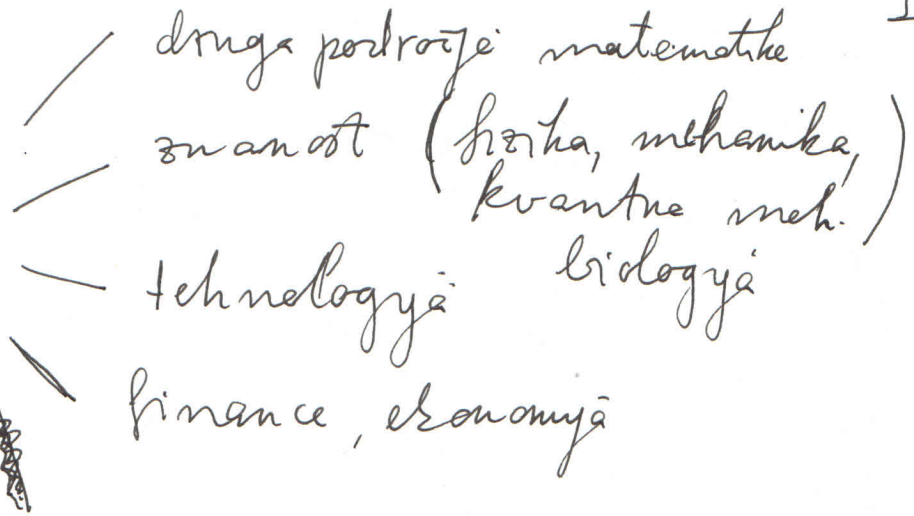 druga področja matematike
znanost (fizika, mehanika,
kvantna meh.)
biologija
tehnologija
finance, ekonomija